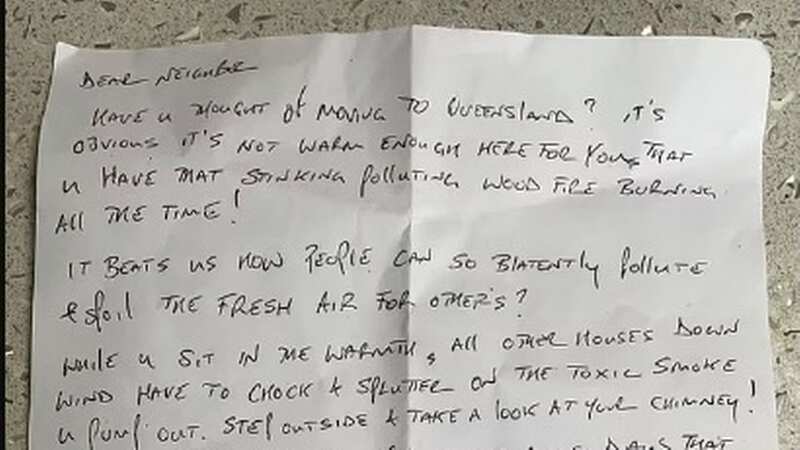 DEAR NEIGHBR
HAVE U THOUGHT OF MOVING TO QUEENSLAND? IT'S
OBVIOUS IT'S NOT WARM ENOUGH HERE FOR YOU, THAT
U HAVE THAT STINKING POLLUTING WOOD FIRE BURNING
ALL THE TIME!
IT BEATS US HOW PEOPLE CAN SO BLATENTLY POLLUTE
& SPOIL THE FRESH AIR FOR OTHER'S?
WHILE U SIT IN THE WARMTH, ALL OTHER HOUSES DOWN
WIND HAVE TO CHOCK & SPLUTTER ON THE TOXIC SMOKE
U PUMP OUT. STEP OUTSIDE & TAKE A LOOK AT YOUR CHIMNEY!
DAYS THAT